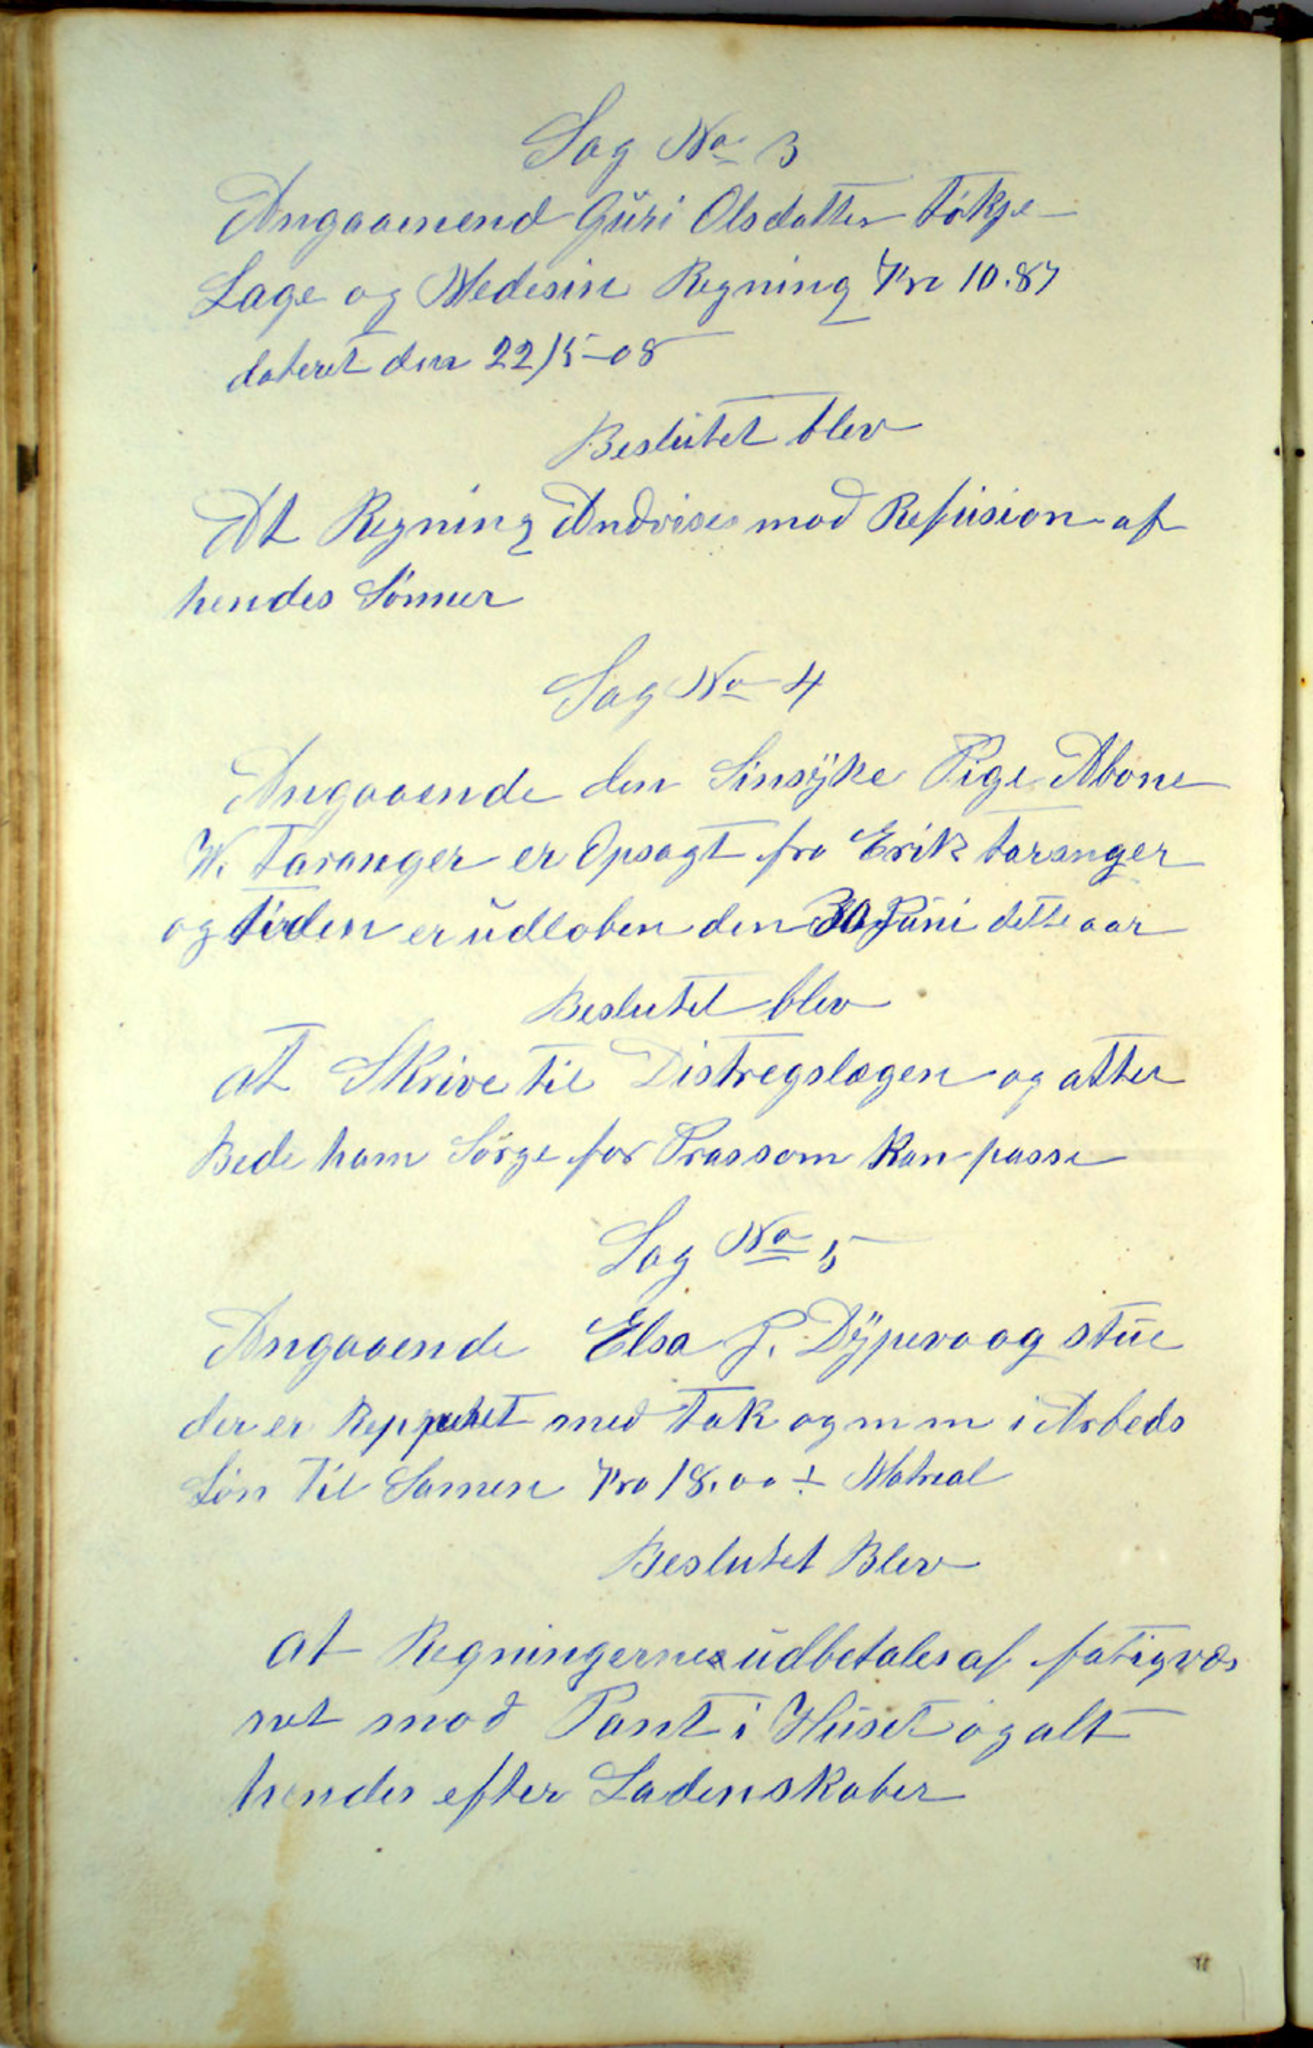 Sag No 3
Angaaenend Guri Olsdatter Tökje
Læge og Medesin Regning Kr 10.87
dateret den 22/5-08
Beslutet blev
At Regning Andvises mod Refusion af
hendes Sönner
Sag No 4
Angaaende den Sinsyke Pige Abone
W. Taranger er Opsagt fra Erik Taranger
og tiden er udloben den 30 Juni dette aar
Beslutet blev
at Skrive til Distregslægen og atter
Bede ham Sörge for Plas som kan passe
Sag No 5
Angaaende Elsa J. Dypevaag stue
der er Repperet med Tak og m m i Arbeds
Lön til Samen Kro 18.00 ÷ Matreal
Beslutet Blev
at Regningerne udbetales af fatigvæs
net mod Pant i Huset og alt
hendes efter Ladenskaber